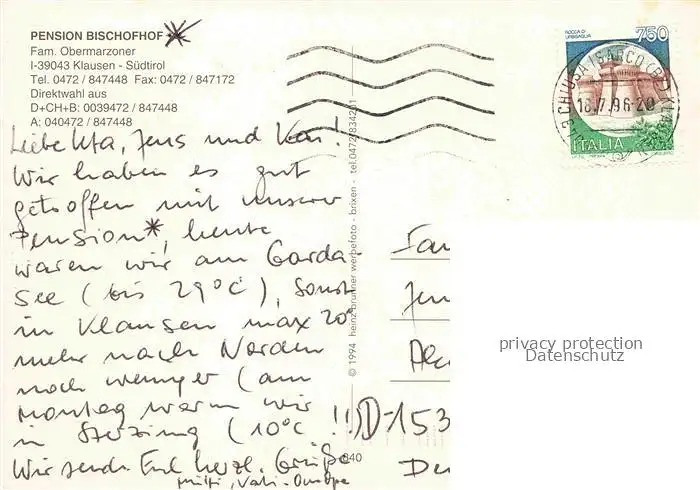 PENSION BISCHOFHOF **
Fam. Obermarzoner
I-39043 Klausen - Südtirol
Tel. 0472 / 847448 Fax: 0472 / 847172
Direktwahl aus
D+CH+B: 0039472 / 847448
A: 040472 / 847448
Liebe Uta, Jens und Kai!
Wir haben es gut
getroffen mit unserer
Pension*, heute
waren wir am Garda-
See (bis 29°C), sonst
in Klausen max 20°
mehr nach Norden
noch weniger (am
Montag waren wir
in Sterzing (10°C !!)
Wir senden Euch herzl. Grüße
© 1994 heinz brunner werbefoto - brixen - tel.0472/834201
840
ROCCA DI
URBISAGLIA
750
ITALIA
CHIUSA ISARCO (BZ)
18.7.96-20
Fam
Jen
D-153
privacy protection
Datenschutz